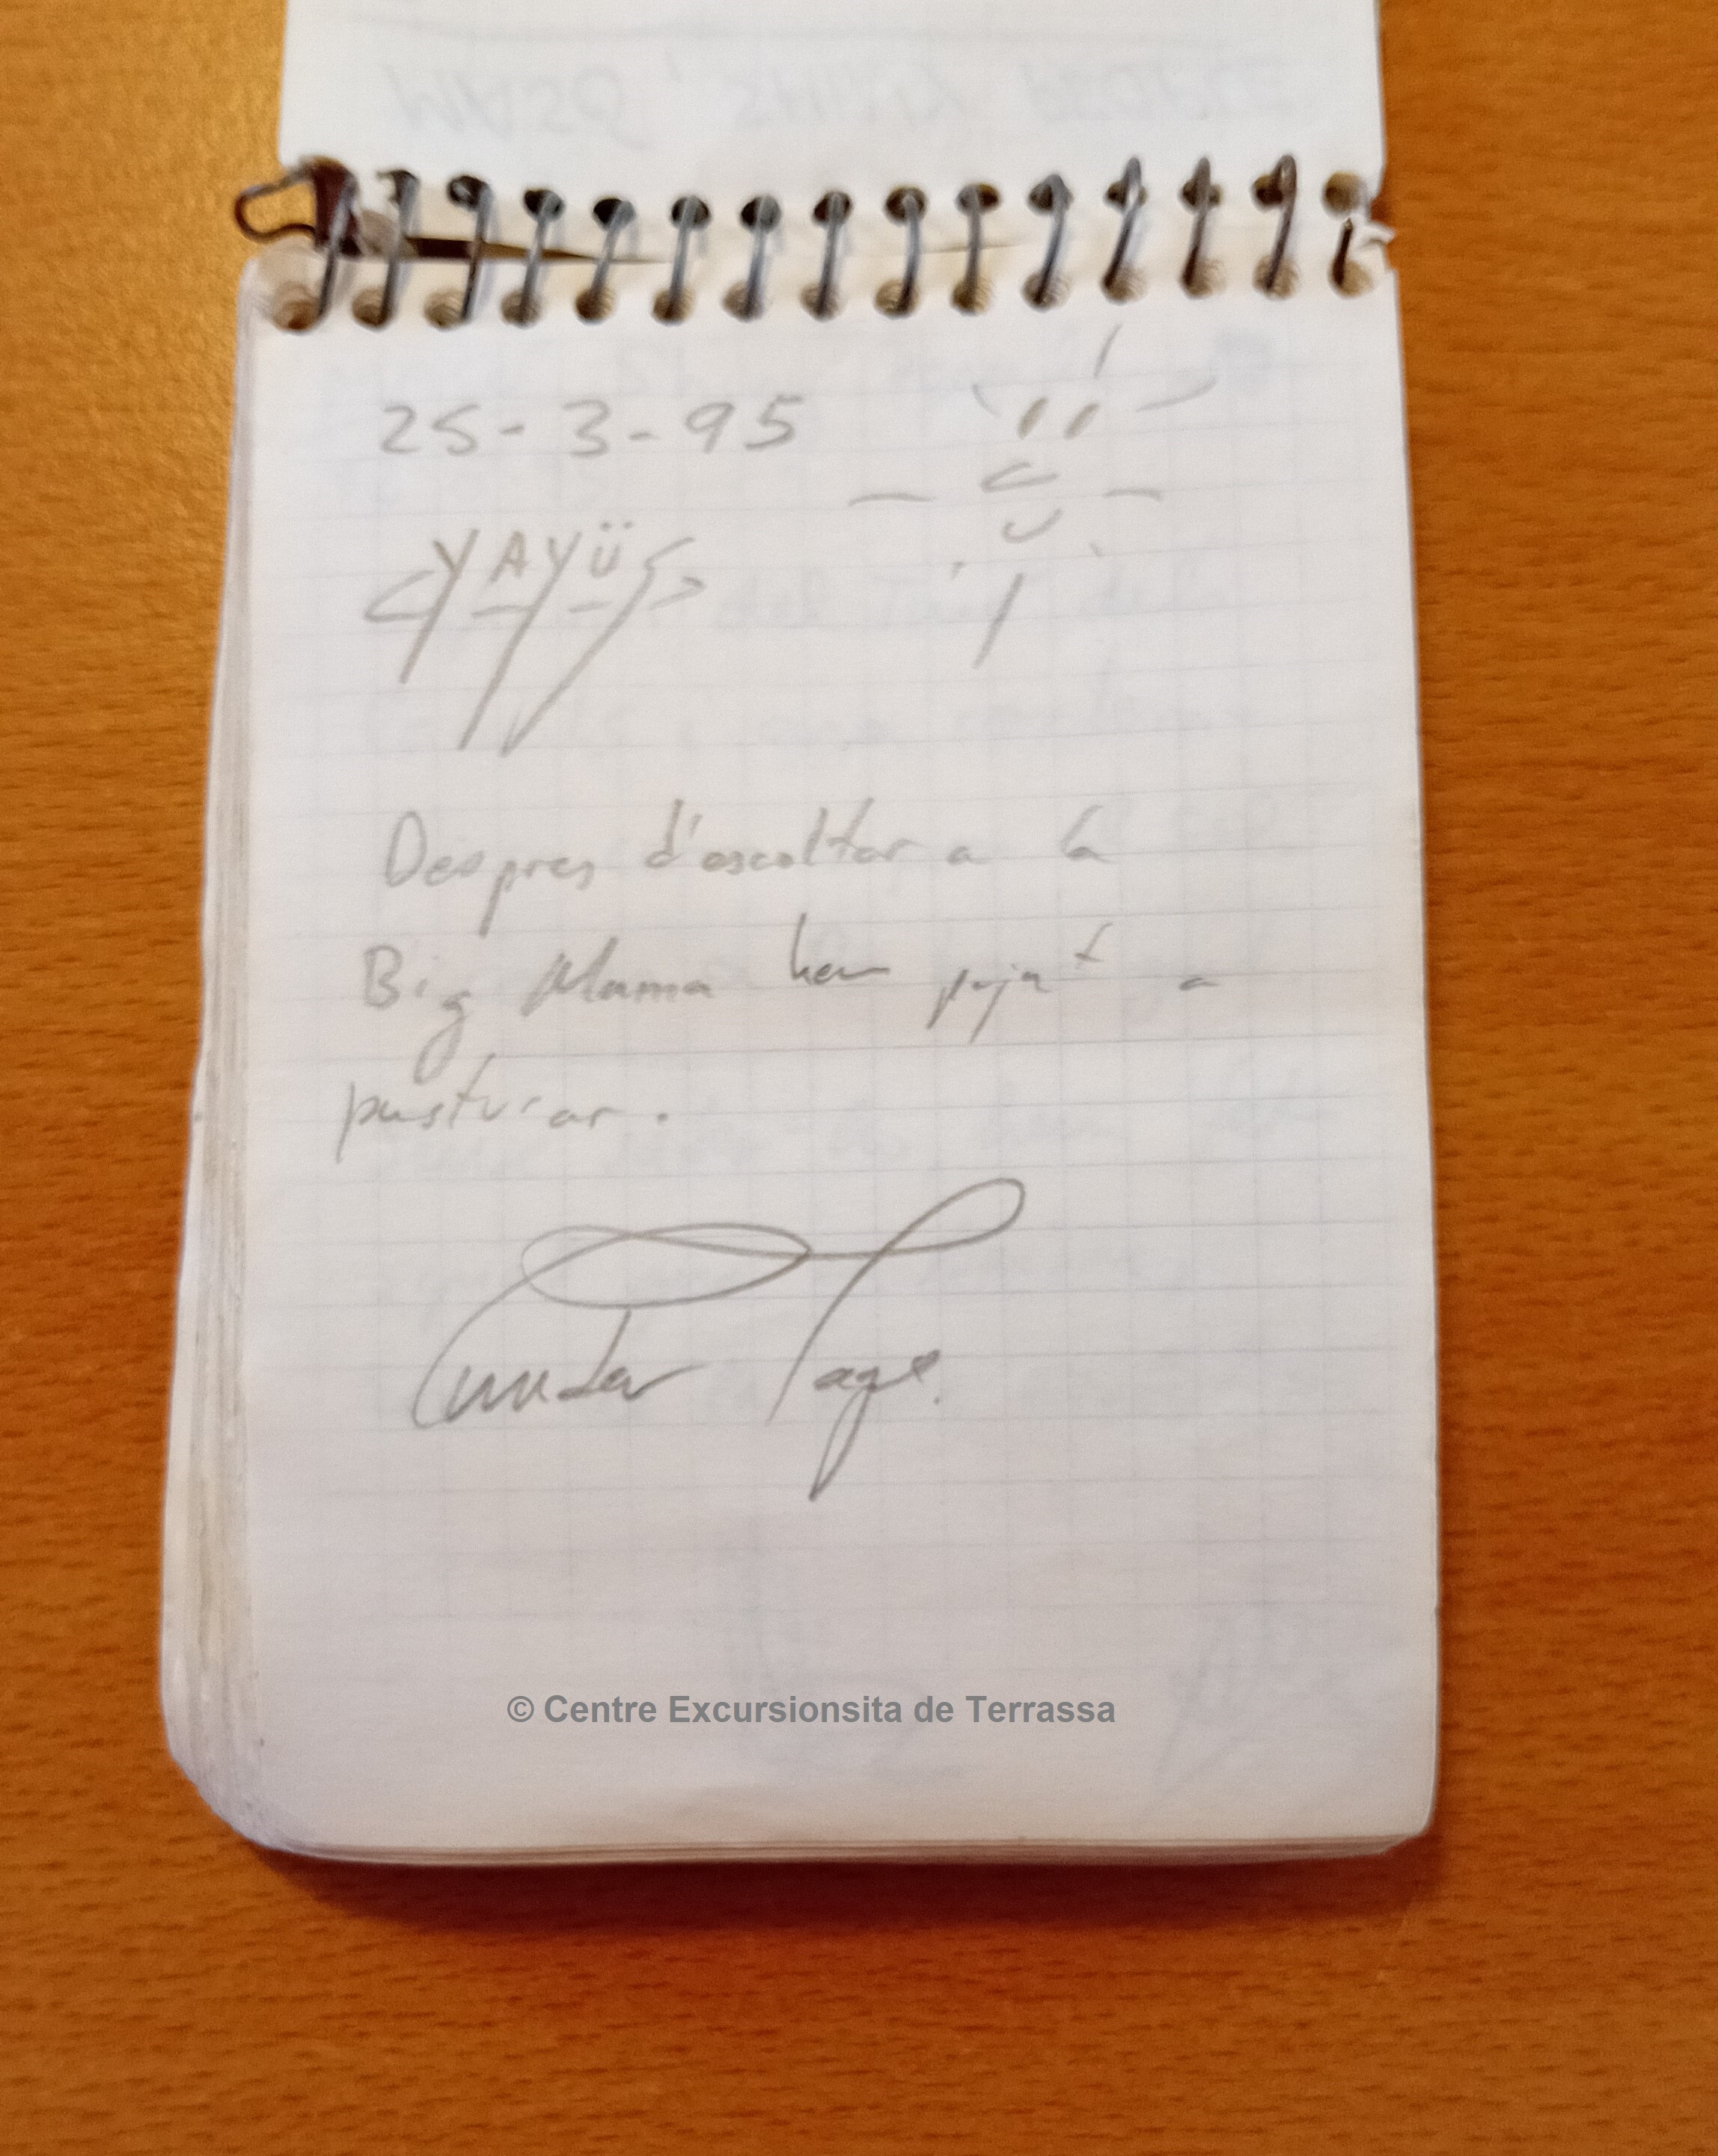 25-3-95
YAYÜS
Despres d'escoltar a la
Big Mama hem pujat a
pasturar.
© Centre Excursionsita de Terrassa